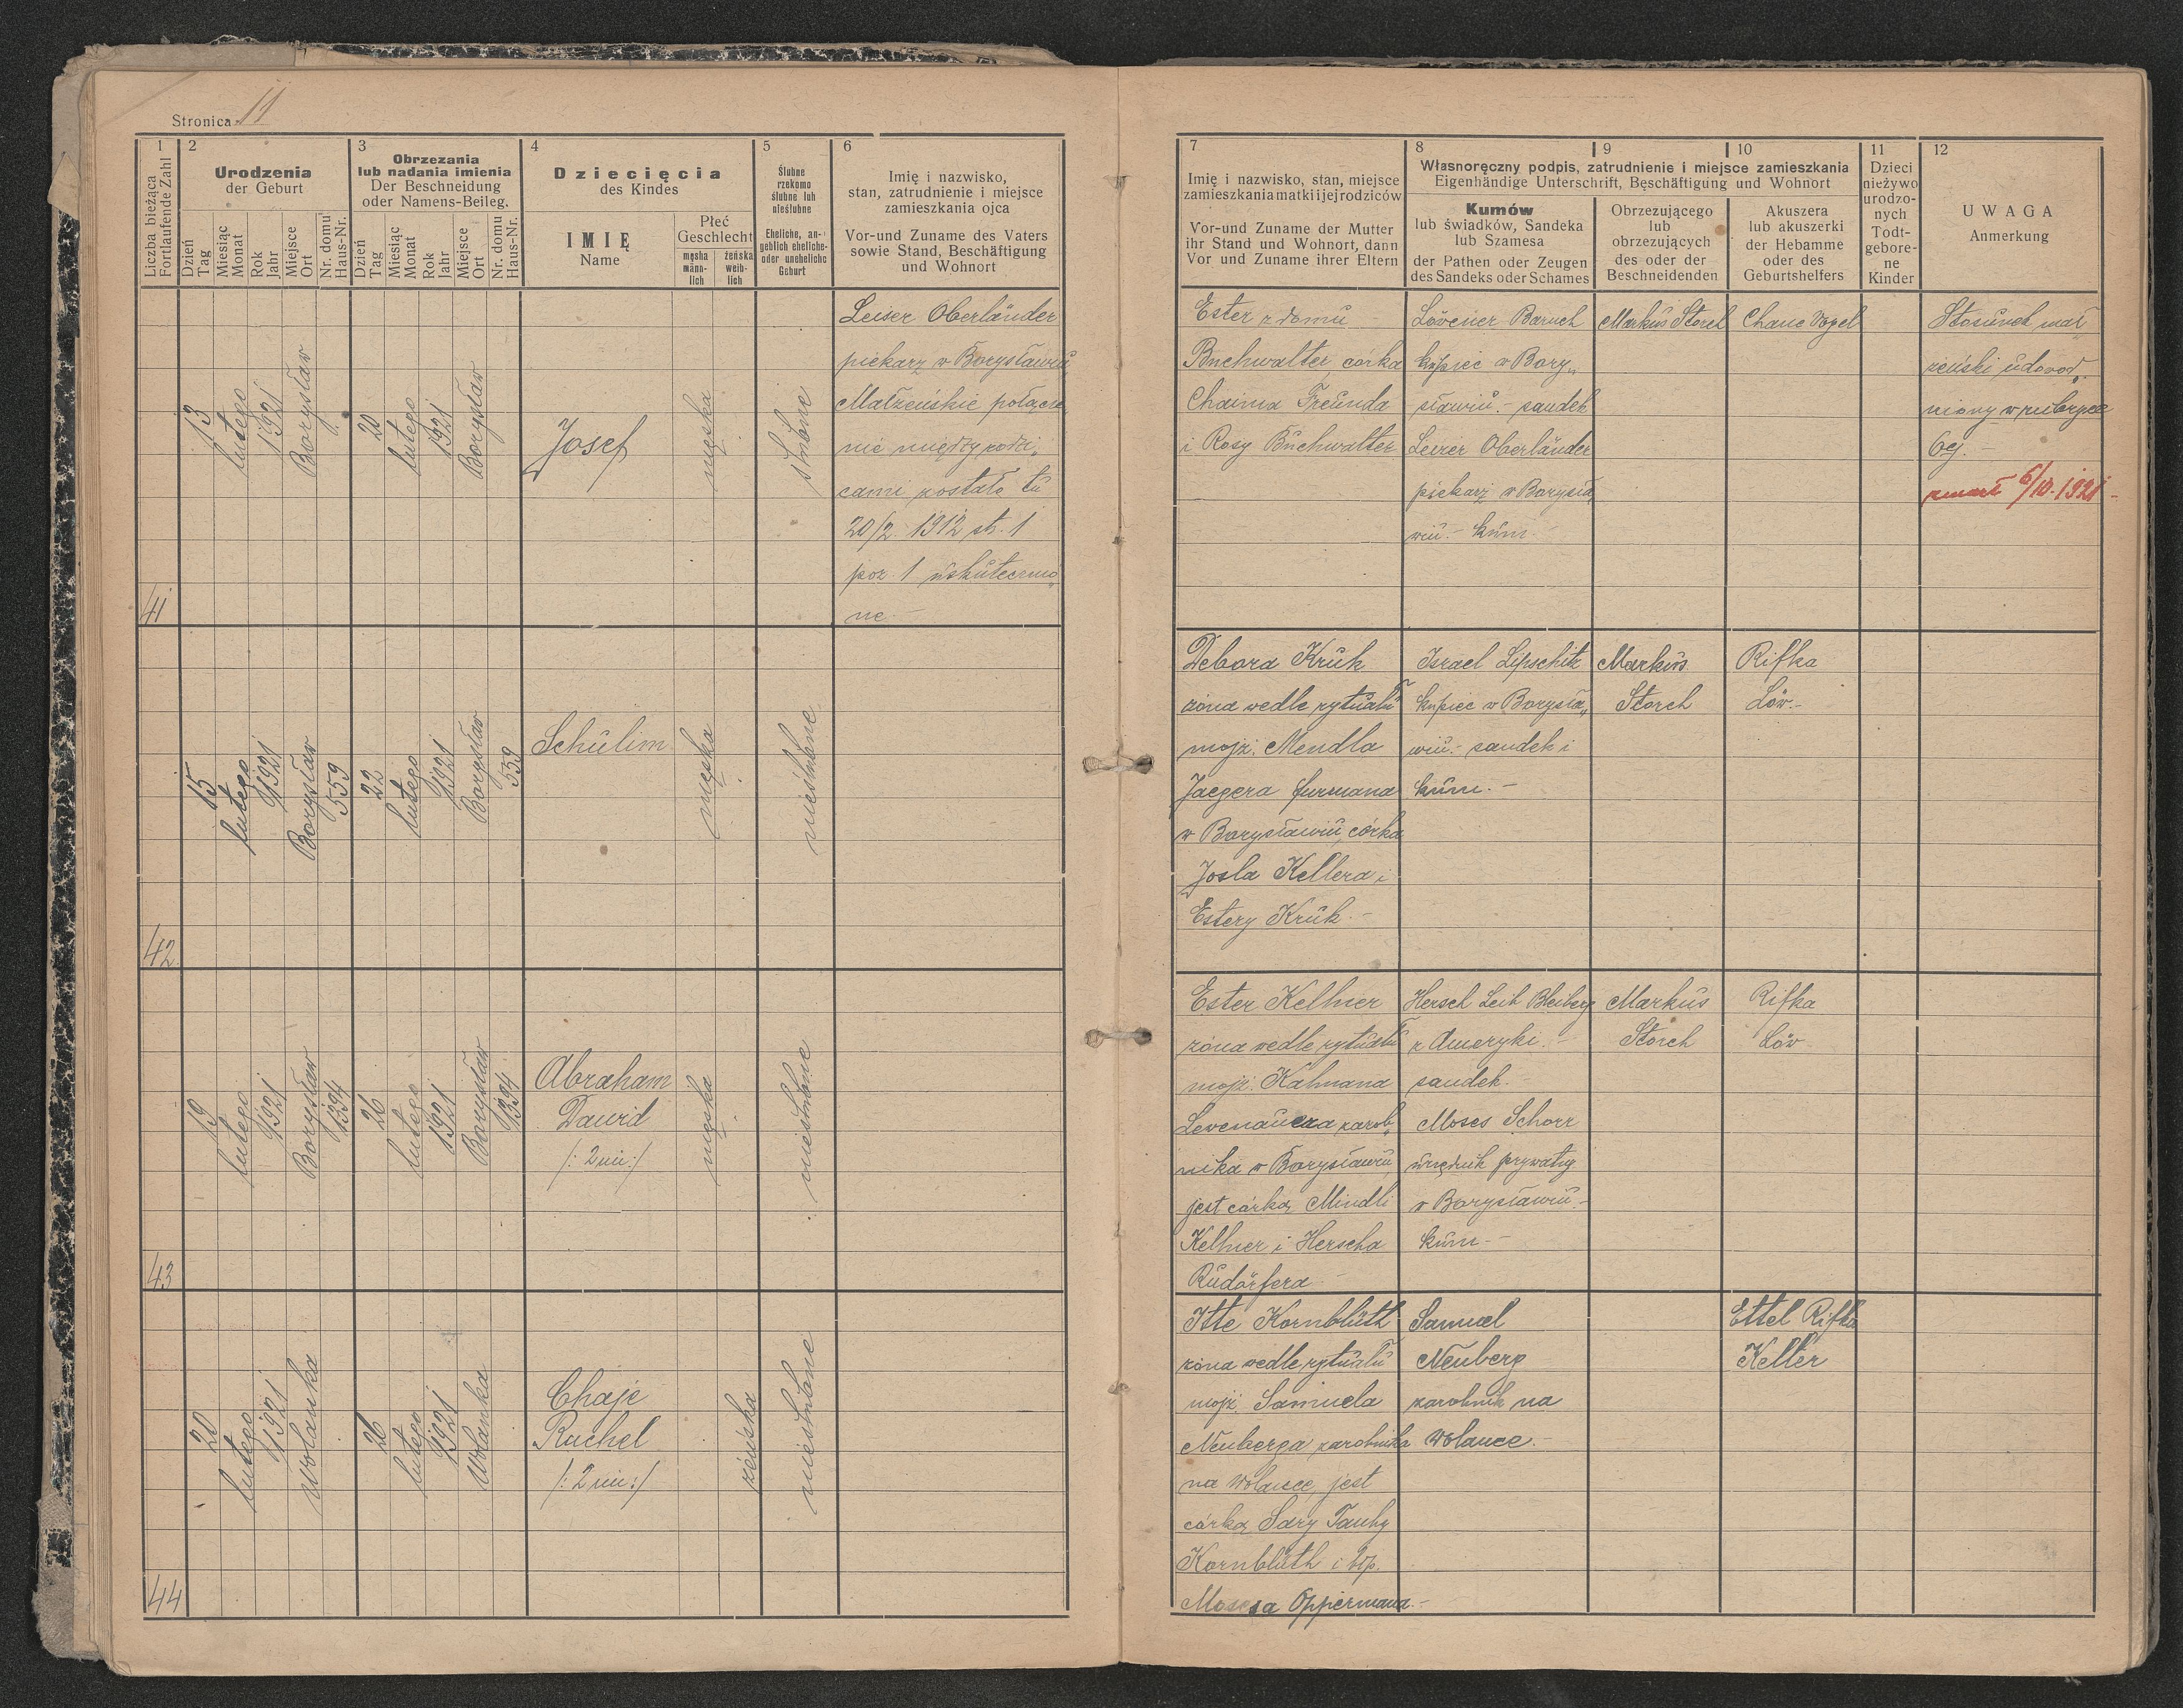 Stronica 11
1
Liczba bieżąca
Fortlaufende Zahl
2
Urodzenia
der Geburt
Dzień
Tag
Miesiąc
Monat
Rok
Jahr
Miejsce
Ort
Nr. domu
Haus-Nr.
3
Obrzezania
lub nadania imienia
Der Beschneidung
oder Namens-Beileg.
Dzień
Tag
Miesiąc
Monat
Rok
Jahr
Miejsce
Ort
Nr. domu
Haus-Nr.
4
Dziecięcia
des Kindes
IMIĘ
Name
Płeć
Geschlecht
męska
männ-
lich
żeńska
weib-
lich
5
Ślubne
rzekomo
ślubne lub
nieślubne
Eheliche, an-
geblich eheliche-
oder uneheliche
Geburt
6
Imię i nazwisko,
stan, zatrudnienie i miejsce
zamieszkania ojca
Vor-und Zuname des Vaters
sowie Stand, Beschäftigung
und Wohnort
7
Imię i nazwisko, stan, miejsce
zamieszkania matki i jej rodziców
Vor-und Zuname der Mutter
ihr Stand und Wohnort, dann
Vor und Zuname ihrer Eltern
8 9 10
Własnoręczny podpis, zatrudnienie i miejsce zamieszkania
Eigenhändige Unterschrift, Beschäftigung und Wohnort
Kumów
lub świadków, Sandeka
lub Szamesa
der Pathen oder Zeugen
des Sandeks oder Schames
Obrzezującego
lub
obrzezujących
des oder der
Beschneidenden
Akuszera
lub akuszerki
der Hebamme
oder des
Geburtshelfers
11
Dzieci
nieżywo
urodzo-
nych
Todt-
gebore-
ne
Kinder
12
UWAGA
Anmerkung
41
13
lutego
1921
Borysław
20
lutego
1921
Borysław
Josef
męska
ślubne
Leiser Oberländer
piekarz w Borysławiu
Małżeńskie połącze„
nie między rodzi„
cami zostało tu
20/2. 1912 str. 1
poz. 1 uskutecznio„
ne.–
Ester z domu
Buchwalter, córka
Chaima Freunda
i Rosy Buchwalter
Lövener Baruch
kupiec w Bory„
sławiu.– sandek
Leizer Oberländer
piekarz w Borysła„
wiu.– kum
Markus Storch
Chane Vogel
Stosunek mał„
żeński udowod„
niony w rubryce
6ej.–
zmarł 6/10. 1921 –
42
15
lutego
1921
Borysław
559
22
lutego
1921
Borysław
559
Schulim
męska
nieślubne
Debora Kruk
żona wedle rytuału
mojż. Mendla
Jaegera furmana
w Borysławiu, córka
Josla Kellera i
Estery Kruk.–
Israel Lipschitz
kupiec w Borysła„
wiu.– sandek i
kum.–
Markus
Storch
Rifka
Löw.–
43
19
lutego
1921
Borysław
1394
26
lutego
1921
Borysław
1394
Abraham
Dawid
/: 2 im :/
męska
nieślubne
Ester Kellner
żona wedle rytuału
mojż. Kalmana
Levenauera zarob„
nika w Borysławiu
jest córką Mindli
Kellner i Herscha
Rudörfera
Hersch Leib Bleiberg
z Ameryki.–
sandek.–
Moses Schorr
urzędnik prywatny
w Borysławiu.–
kum.–
Markus
Storch
Rifka
Löw
44
20
lutego
1921
Wolanka
26
lutego
1921
Wolanka
Chaje
Ruchel
/: 2 im :/
żeńska
nieślubne
Itte Kornblüth
żona wedle rytuału
mojż. Samuela
Neuberga zarobnika
na Wolance, jest
córką Sary Tauby
Kornblüth i śp.
Mosesa Oppermana.–
Samuel
Neuberg
zarobnik na
Wolance.–
Ettel Rifka
Keller